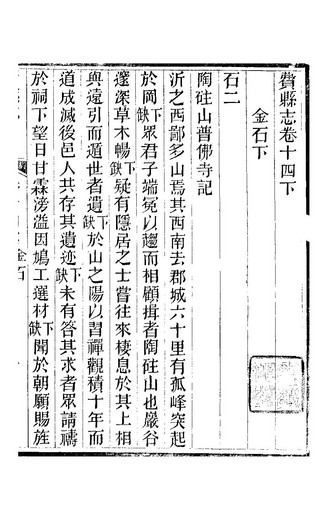 費縣志卷十四下
金石下
石二
陶硅山普佛寺記
沂之西鄙多山焉其西南去郡城六十里有孤峰突起
於岡下缺眾君子端冕以趨而相顧揖者陶硅山也巖谷
邃深草木暢下缺疑有隱居之士嘗往來棲息於其上相
與遠引而遁世者遺下缺於山之陽以習禪觀積十年而
道成滅後邑人共存其遺迹下缺未有答其求者眾請禱
於祠下望日甘霖滂溢因鳩工選材下缺聞於朝願賜旌
金石